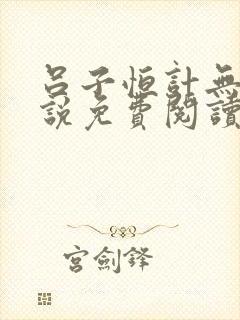 呂子恒計無
說免費閱讀
宮劍鋒